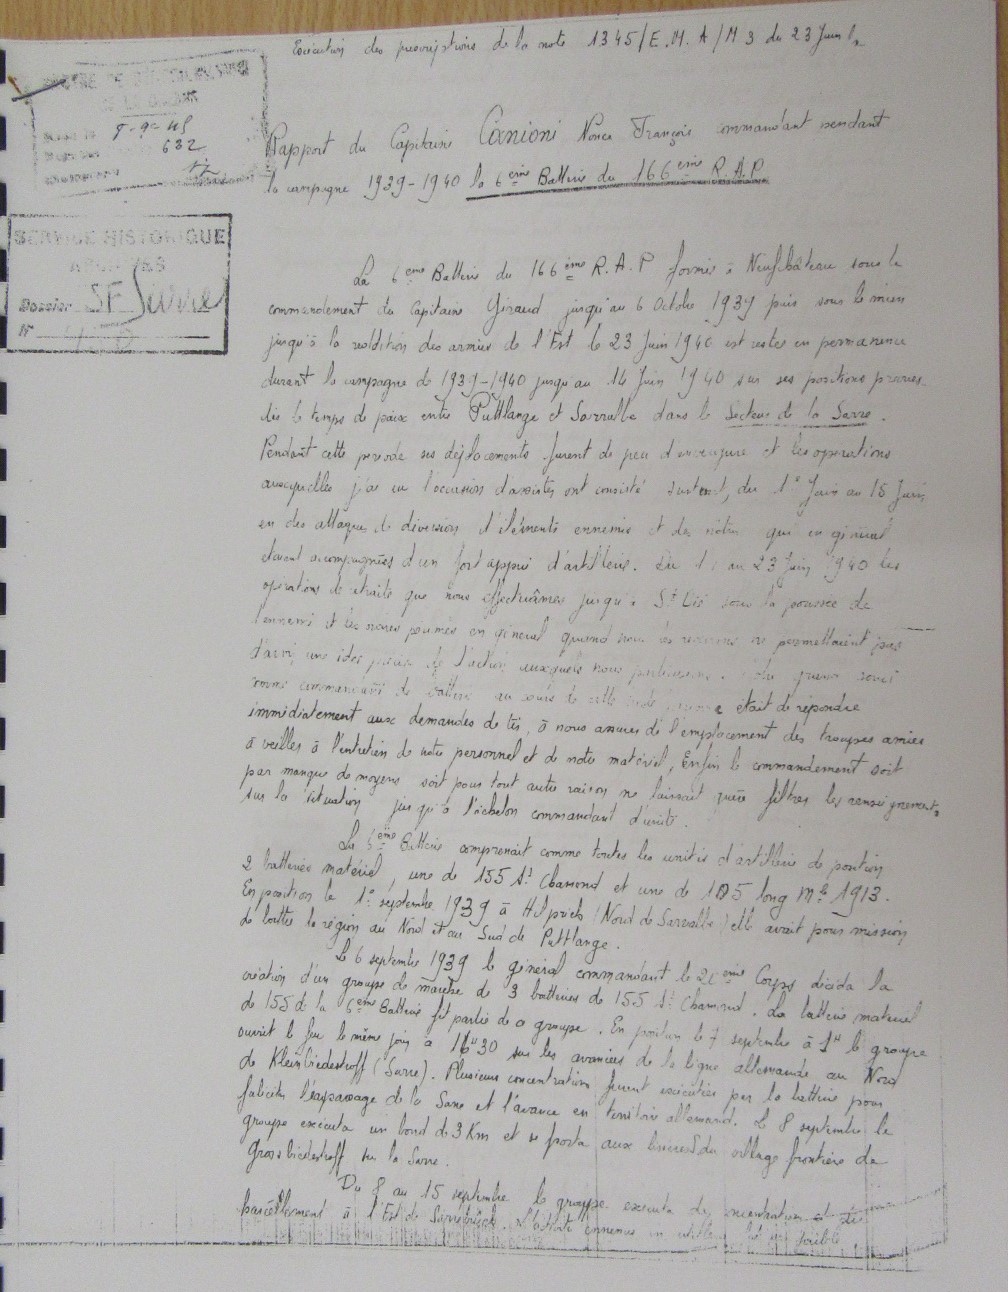 Exécution des prescriptions de la note 1345/E.M.A/M3 du 23 Juin
8-9-45
632
SERVICE HISTORIQUE
ARCHIVES
Dossier SF Sarre
N°
Rapport du Capitaine Canioni Nonce François commandant pendant
la campagne 1939-1940 la 6ème Batterie du 166ème R.A.P.
La 6ème Batterie du 166ème R.A.P formée à Neufchâteau sous le
commandement du Capitaine Giraud jusqu'au 6 Octobre 1939 puis sous le mien
jusqu'à la reddition des armées de l'Est le 23 Juin 1940 est restée en permanence
durant la campagne de 1939-1940 jusqu'au 14 Juin 1940 sur ses positions prévues
dès le temps de paix entre Puttlange et Sarralbe dans le Secteur de la Sarre.
Pendant cette période ses déplacements furent de peu d'envergure et les opérations
auxquelles j'ai eu l'occasion d'assister ont consisté surtout, du 1er Juin au 15 Juin
en des attaques de diversion d'éléments ennemis et des nôtres qui en général
étaient accompagnées d'un fort appui d'artillerie. Du au 23 Juin 1940 les
opérations de retraite que nous effectuâmes jusqu'à St Dié sous la poussée de
l'ennemi et les ordres périmés en général quand nous les recevions ne permettaient pas
d'avoir une idée précise de l'action auxquels nous participions. souci
comme commandant de batterie au cours de cette était de répondre
immédiatement aux demandes de tir, à nous assurer de l'emplacement des troupes amies
à veiller à l'entretien de notre personnel et de notre matériel, Enfin le commandement soit
par manque de moyens soit pour tout autre raison ne laissait guère filtrer les renseignements
sur la situation jusqu'à l'échelon commandant d'unité.
La 6ème Batterie comprenait comme toutes les unités d'artillerie de position
2 batteries matériel, une de 155 St Chamond et une de 105 long Mle 1913.
En position le 1er septembre 1939 à Hilsprich (Nord de Sarralbe) elle avait pour mission
de battre la région au Nord et au Sud de Puttlange.
Le 6 septembre 1939 le général commandant le 20ème Corps décida la
création d'un groupe de marche de 3 batteries de 155 St Chamond. La batterie matériel
de 155 de la 6ème Batterie fit partie de ce groupe. En position le 7 septembre à 1H le groupe
ouvrit le feu le même jour à 16H30 sur les avancées de la ligne allemande au Nord
de Kleinbliederstroff (Sarre). Plusieurs concentrations furent exécutées par la batterie pour
faciliter l'expassage de la Sarre et l'avance en territoire allemand. Le 8 septembre le
groupe exécuta un bond de 3 Km et se porta aux lisières du village frontière de
Grossbliederstroff sur la Sarre.
Du 8 au 15 septembre le groupe exécuta des concentrations et tirs
harcèlement à l'Est de Sarrebrück. L'activité ennemie en artillerie fut